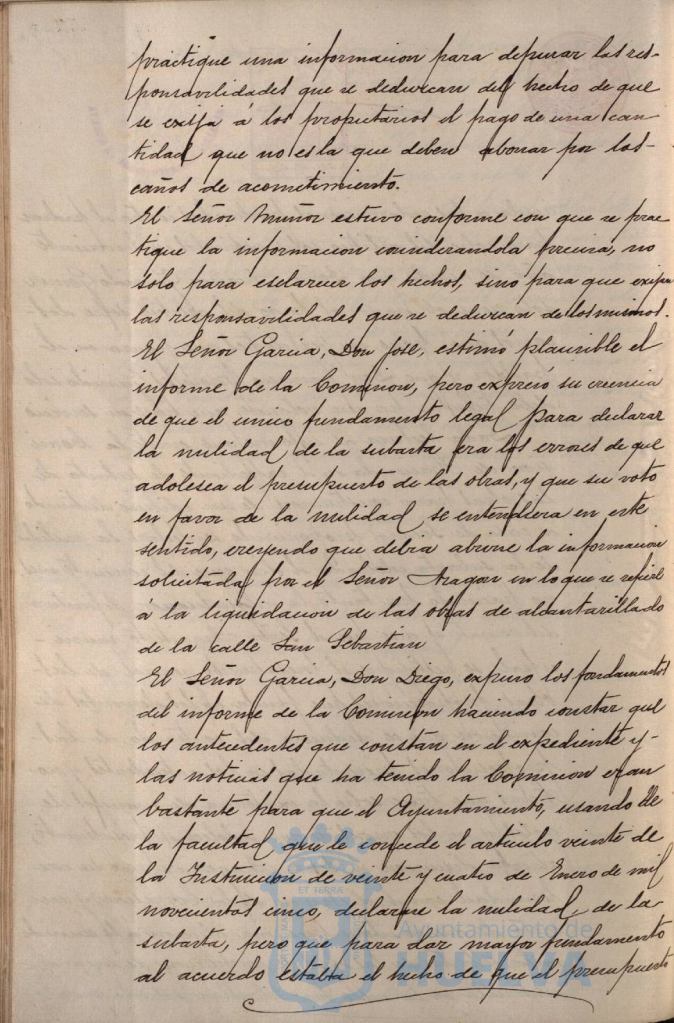 practique una informacion para depurar las res-
ponsavilidades que se deduzcan del hecho de que
se exija á los propietarios el pago de una can-
tidad que no es la que deben abonar por los
caños de acometimiento.
El Señor Muñoz estuvo conforme con que se prac
tique la informacion considerandola precisa, no
solo para esclarecer los hechos, sino para que exijan
las responsavilidades que se deduzcan de los mismos.
El Señor Garcia, Don Jose, estimó plausible el
informe de la Comision, pero expresó su creencia
de que el unico fundamento legal para declarar
la nulidad de la subasta era los errores de que
adolesea el presupuesto de las obras, y que su voto
en favor de la nulidad se entendiera en este
sentido, creyendo que debia abrirse la informacion
solicitada por el Señor Aragon en lo que se refiere
á la liquidacion de las obras de alcantarillado
de la calle San Sebastian
El Señor Garcia, Don Diego, expuso los fundamentos
del informe de la Comision haciendo constar que
los antecedentes que constan en el expediente y
las noticias que ha tenido la Comision eran
bastante para que el Ayuntamiento, usando de
la facultad que le concede el articulo veinte de
la Instruccion de veinte y cuatro de Enero de mil
novecientos cinco, declarase la nulidad de la
subasta, pero que para dar mayor fundamento
al acuerdo estaba el hecho de que el presupuesto
Ayuntamiento de
HUELVA